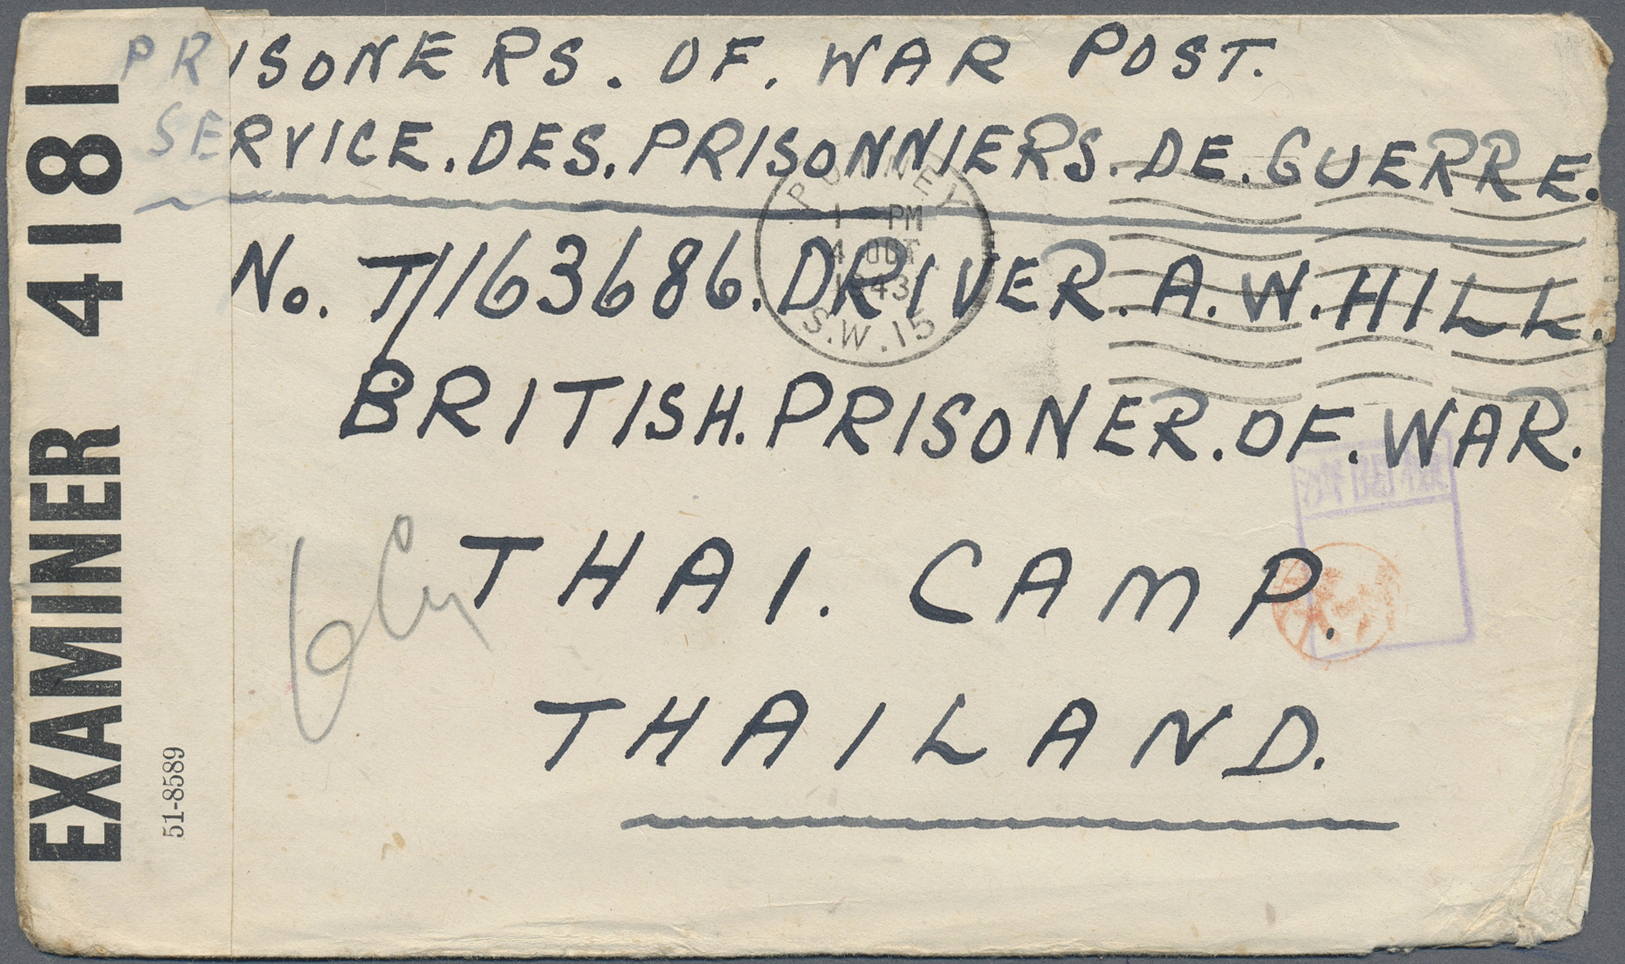 PRISONERS. OF. WAR POST.
SERVICE. DES. PRISONNIERS. DE. GUERRE.
No. T/163686. DRIVER. A. W. HILL.
BRITISH. PRISONER. OF. WAR.
THAI. CAMP.
THAILAND.
PUTNEY
1 PM
4 OCT
1943
S.W.15
EXAMINER 4181
51-8589